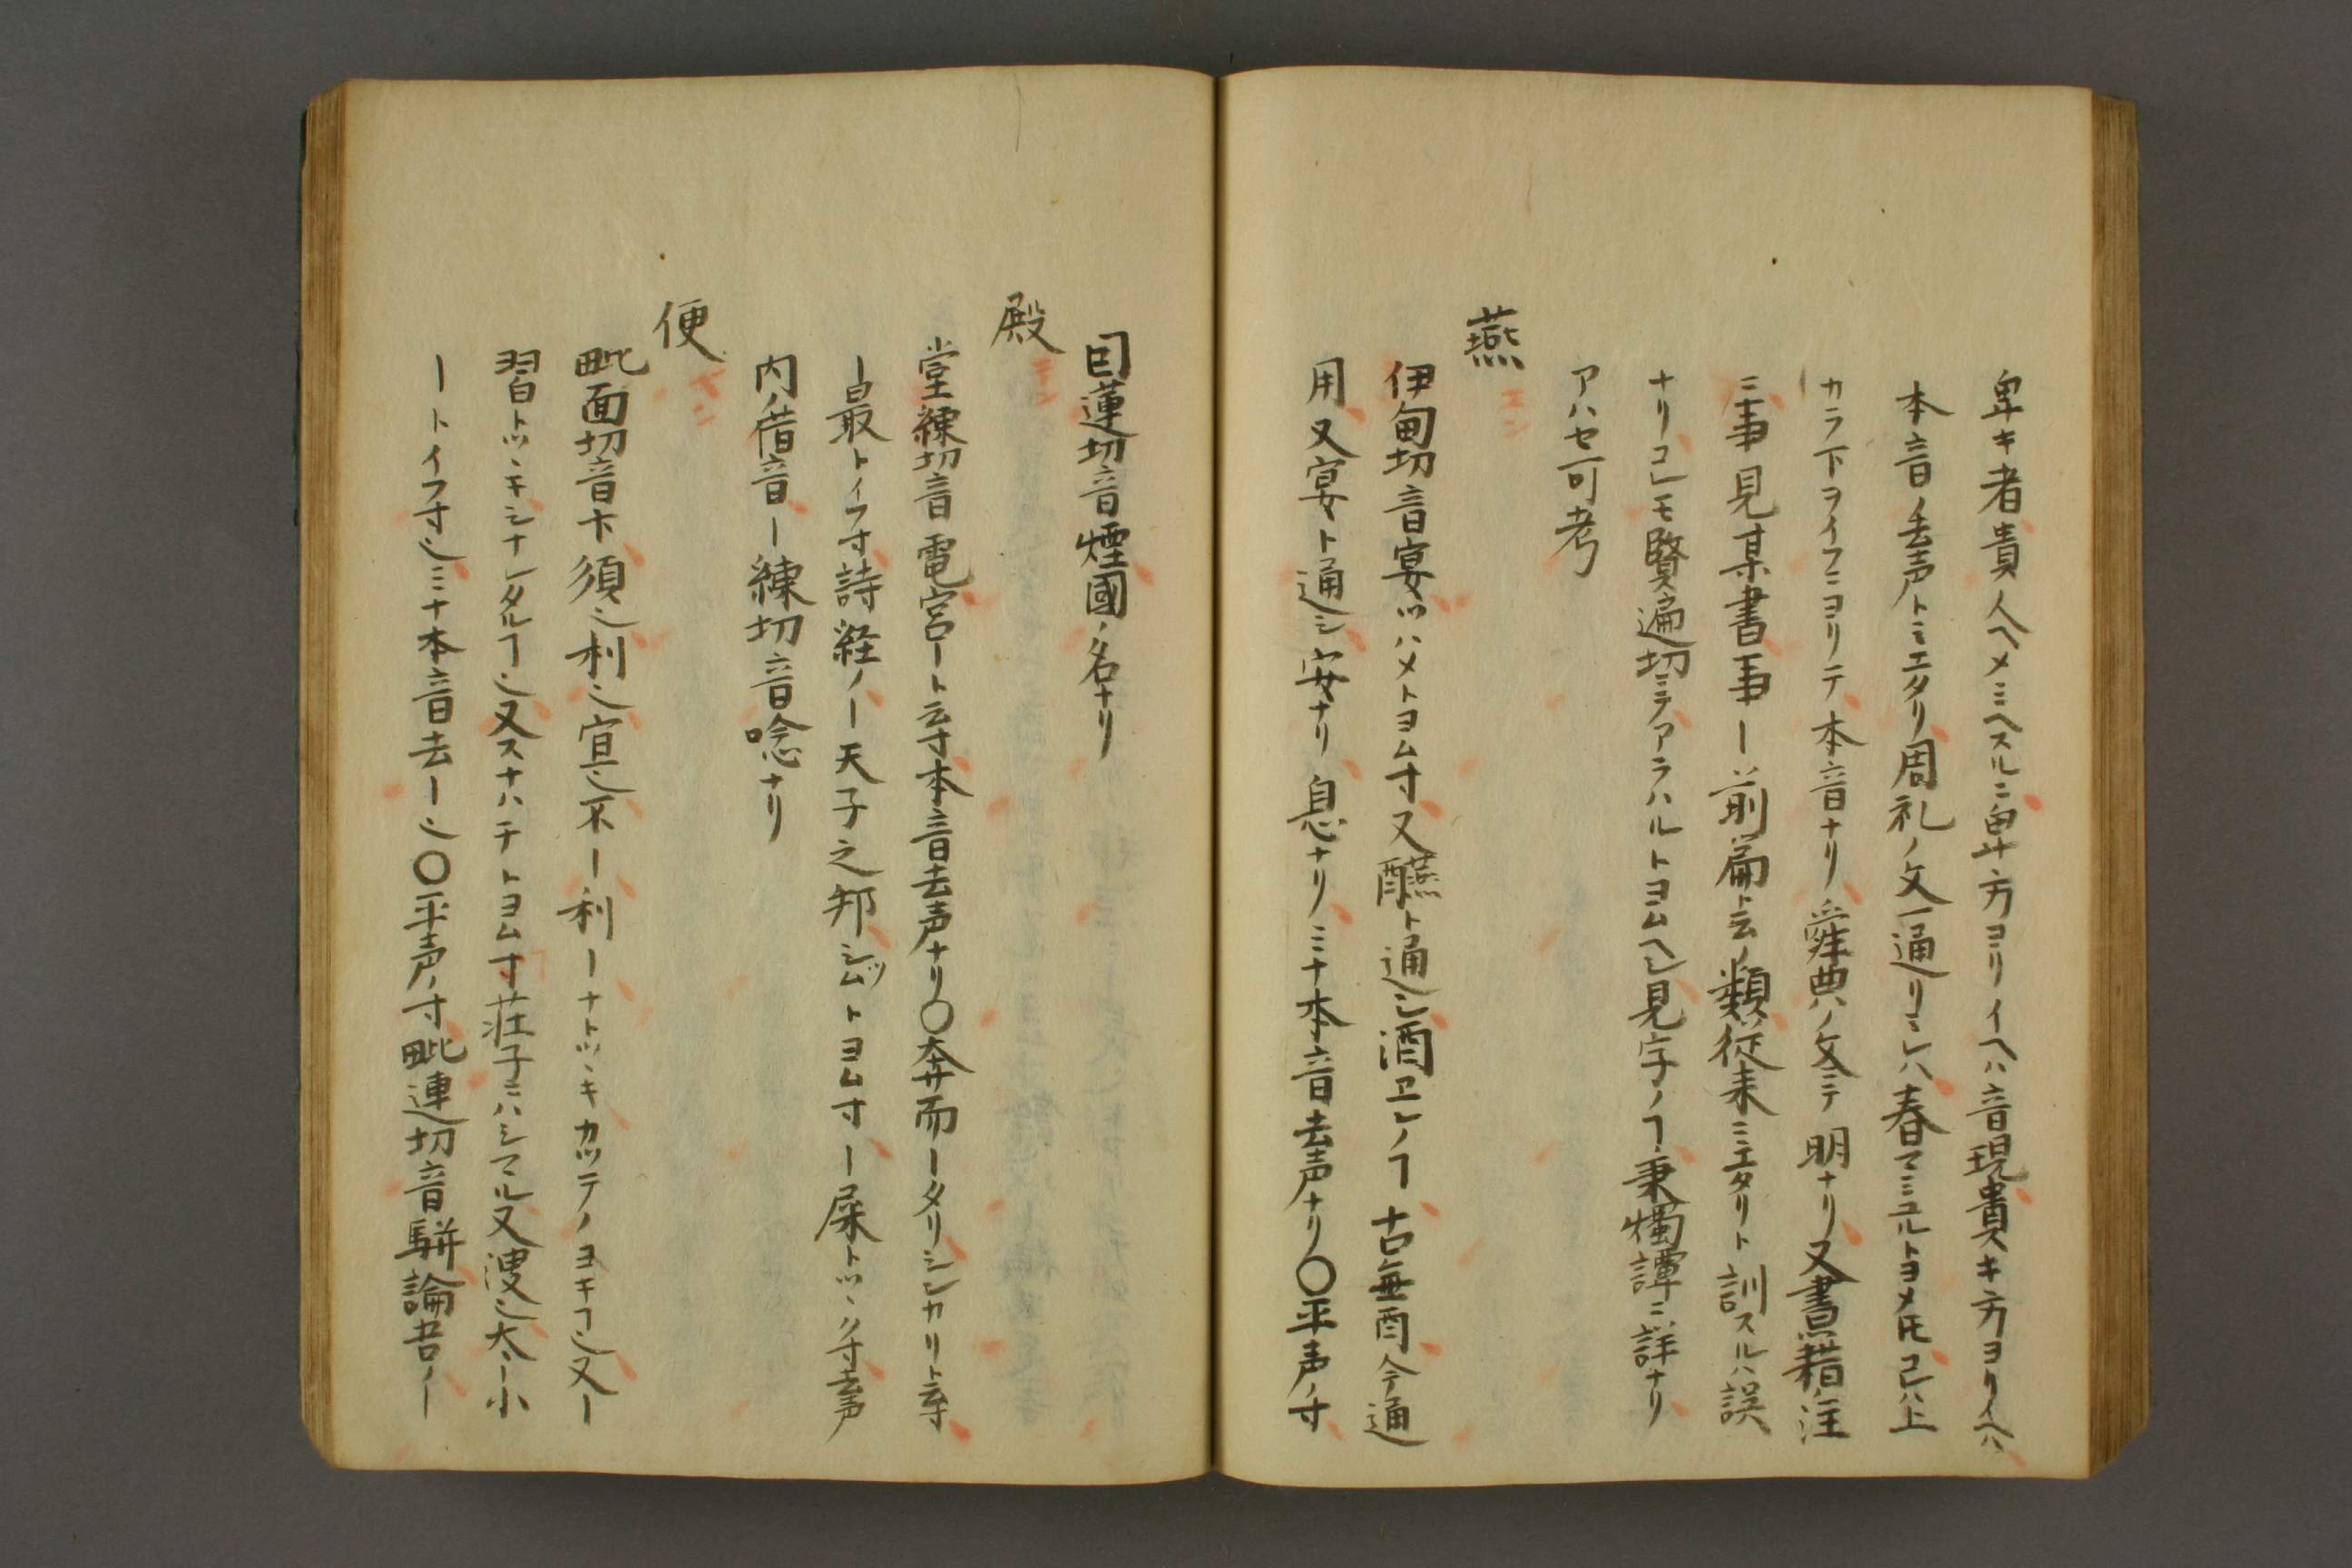 卑キ者貴人ヘメミヘスルニ卑キ方ヨリイヘハ音現貴キ方ヨリイヘハ
本音ノ去声トミエタリ周礼ノ文一通リミレハ春マミユルトヨメ𪜈コレハ上
カラ下ヲイフニヨリテ本音ナリ舜典ノ文ニテ明ナリ又書籍ノ注
ニ事見某書事ー前篇ト云ノ類従来ミエタリト訓スルハ誤
ナリコレモ賢遍切ニテアラハルトヨムヘシ見字ノヿ秉燭譚ニ詳ナリ
アハセ可考
燕 エン
伊甸切音宴ツハメトヨム寸又醼ト通シ酒ヱンノヿ古無酉今通
用又宴ト通シ安ナリ息ナリミナ本音去声ナリ〇平声ノ寸
因蓮切音煙國ノ名ナリ
殿 テン
堂練切音電宮ート云寸本音去声ナリ〇奔而ータリシンカリト云寸
ー最トイフ寸詩経ノー天子之邦シツムトヨム寸ー屎トツヽク寸去声
内ノ借音ー練切音唸ナリ
便 ベン
毗面切音卞須也利也宜也不ー利ーナトツヽキカツテノヨキヿ也又ー
習トツヽキシナレタルヿ也又スナハチトヨム寸荘子ニハシマル又溲也大ー小
ートイフ寸也ミナ本音去ー也〇平声ノ寸毗連切音駢論吾ノー